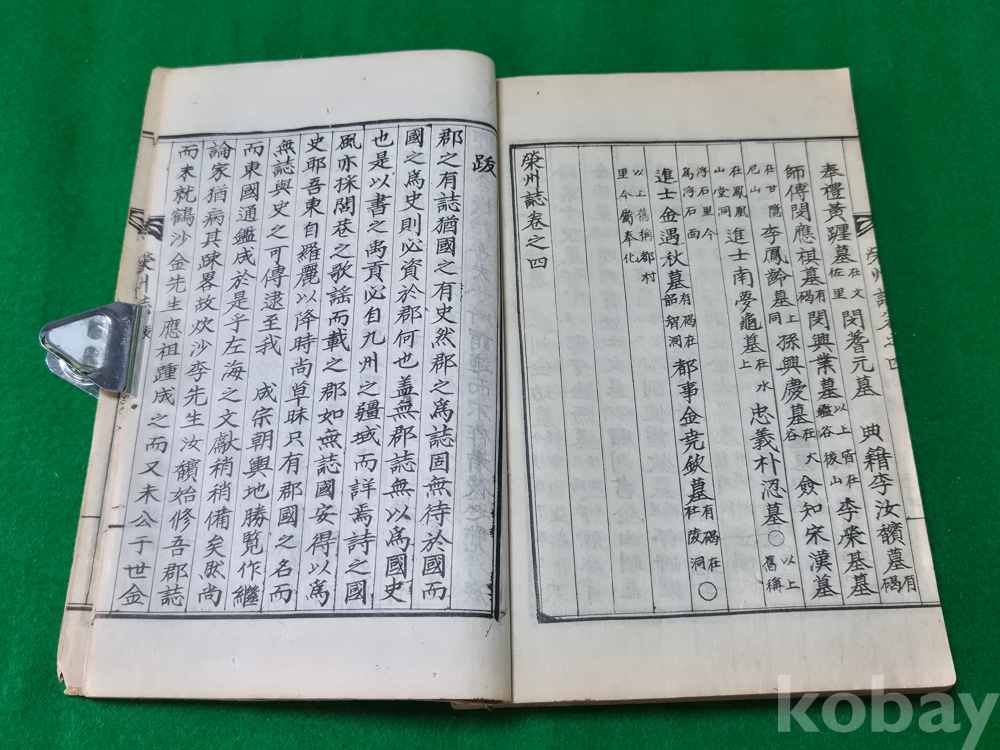 奉禮黃躔墓在文佐里 閔蓍元墓 典籍李汝馪墓有碣
師傅閔應祺墓有碣 閔興業墓以上皆在鑑谷後山 李榮基墓
在甘隱 李鳳齡墓同上 孫興慶墓在大谷 僉知宋漢墓
在鳳凰山堂洞 進士南夢龜墓在水上 忠義朴墓○以上舊稱
浮石里今為浮石面 進士金遇秋墓有碣在韶智洞 都事金堯欽墓有碣在杜陵洞○
以上舊稱郡村里今屬奉化
榮州誌卷之四
榮州誌卷之四
跋
郡之有誌猶國之有史然郡之為誌固無待於國而
國之為史則必資於郡何也盖無郡誌無以為國史
也是以書之禹貢必自九州之疆域而詳焉詩之國
風亦採閭巷之歌謡而載之郡如無誌國安得以為
史耶吾東自羅麗以降時尚草昧只有郡國之名而
無誌與史之可傳逮至我 成宗朝輿地勝覧作継
而東國通鑑成於是乎左海之文獻稍稍備矣然尚
論家猶病其踈畧故炊沙李先生汝馪始修吾郡誌
而未就鶴沙金先生應祖踵成之而又未公于世金
榮州誌跋
kobay